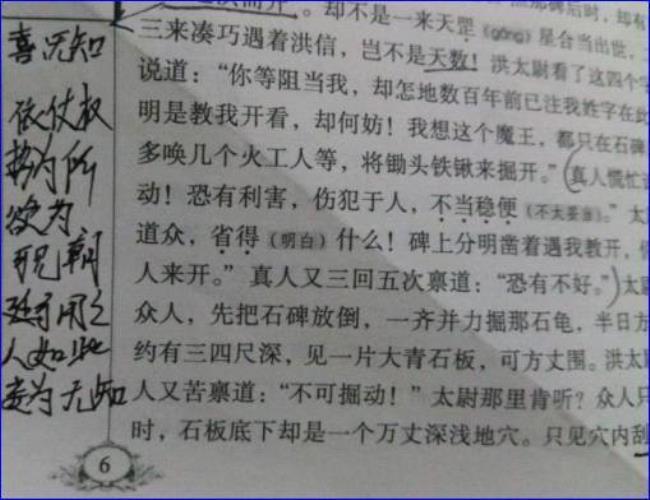 而开。却不是一来天罡(gāng)星合当出世,
三来凑巧遇着洪信,岂不是天数!洪太尉看了这四个字
说道:“你等阻当我,却怎地数百年前已注我姓字在此
明是教我开看,却何妨!我想这个魔王,都只在石碑
多唤几个火工人等,将锄头铁锹来掘开。”(真人慌忙
动!恐有利害,伤犯于人,不当稳便(不太妥当)。”太
道众,省得(明白)什么!碑上分明凿着遇我教开,
人来开。”真人又三回五次禀道:“恐有不好。”)太
众人,先把石碑放倒,一齐并力掘那石龟,半日方
约有三四尺深,见一片大青石板,可方丈围。洪太
人又苦禀道:“不可掘动!”太尉那里肯听?众人只
时,石板底下却是一个万丈深浅地穴。只见穴内刮
依仗权
为所
欲为
朝
人如此
为无知
6